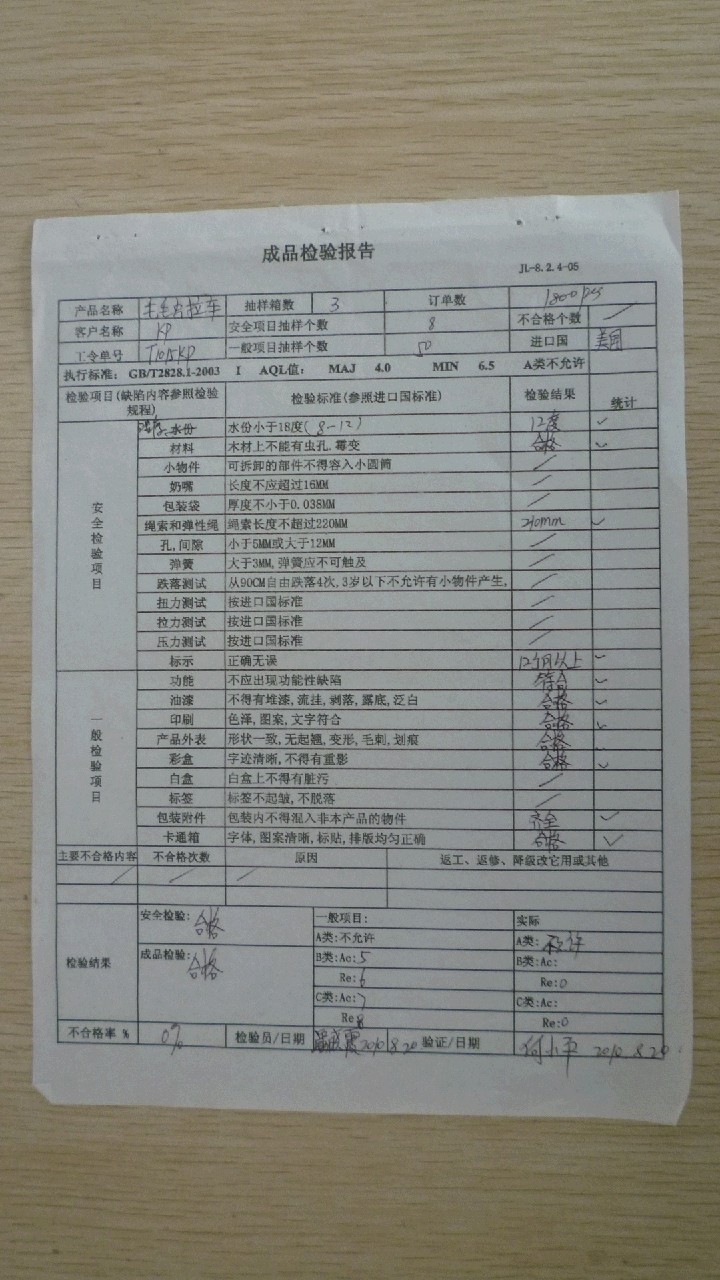 成品检验报告
JL-8.2.4-05
产品名称 毛毛虫拉车 抽样箱数 3 订单数 1800pcs
客户名称 KP 安全项目抽样个数 8 不合格个数 /
工令单号 一般项目抽样个数 50 进口国 美国
执行标准: GB/T2828.1-2003 I AQL值: MAJ 4.0 MIN 6.5 A类不允许
检验项目(缺陷内容参照检验规程) 检验标准(参照进口国标准) 检验结果 统计
安全检验项目
水份 水份小于18度(8-12) 12度 ✓
材料 木材上不能有虫孔,霉变 合格 ✓
小物件 可拆卸的部件不得容入小圆筒 /
奶嘴 长度不应超过16MM /
包装袋 厚度不小于0.038MM /
绳索和弹性绳 绳索长度不超过220MM 210mm ✓
孔,间隙 小于5MM或大于12MM /
弹簧 大于3MM,弹簧应不可触及 /
跌落测试 从90CM自由跌落4次,3岁以下不允许有小物件产生, /
扭力测试 按进口国标准 /
拉力测试 按进口国标准 /
压力测试 按进口国标准 /
标示 正确无误 12个月以上 ✓
一般检验项目
功能 不应出现功能性缺陷 符合 ✓
油漆 不得有堆漆,流挂,剥落,露底,泛白 合格 ✓
印刷 色泽,图案,文字符合 合格 ✓
产品外表 形状一致,无起翘,变形,毛刺,划痕 合格 ✓
彩盒 字迹清晰,不得有重影 合格 ✓
白盒 白盒上不得有脏污 /
标签 标签不起皱,不脱落 /
包装附件 包装内不得混入非本产品的物件 齐全 ✓
卡通箱 字体,图案清晰,标贴,排版均匀正确 合格 ✓
主要不合格内容 不合格次数 原因 返工、返修、降级改它用或其他
/ / /
检验结果
安全检验: 合格 一般项目: 实际
A类:不允许 A类:
成品检验: 合格 B类:Ac:5 B类:Ac:
Re:6 Re:0
C类:Ac:7 C类:Ac:
Re:8 Re:0
不合格率 % 0% 检验员/日期 2010.8.20 验证/日期 何小平 2010.8.20